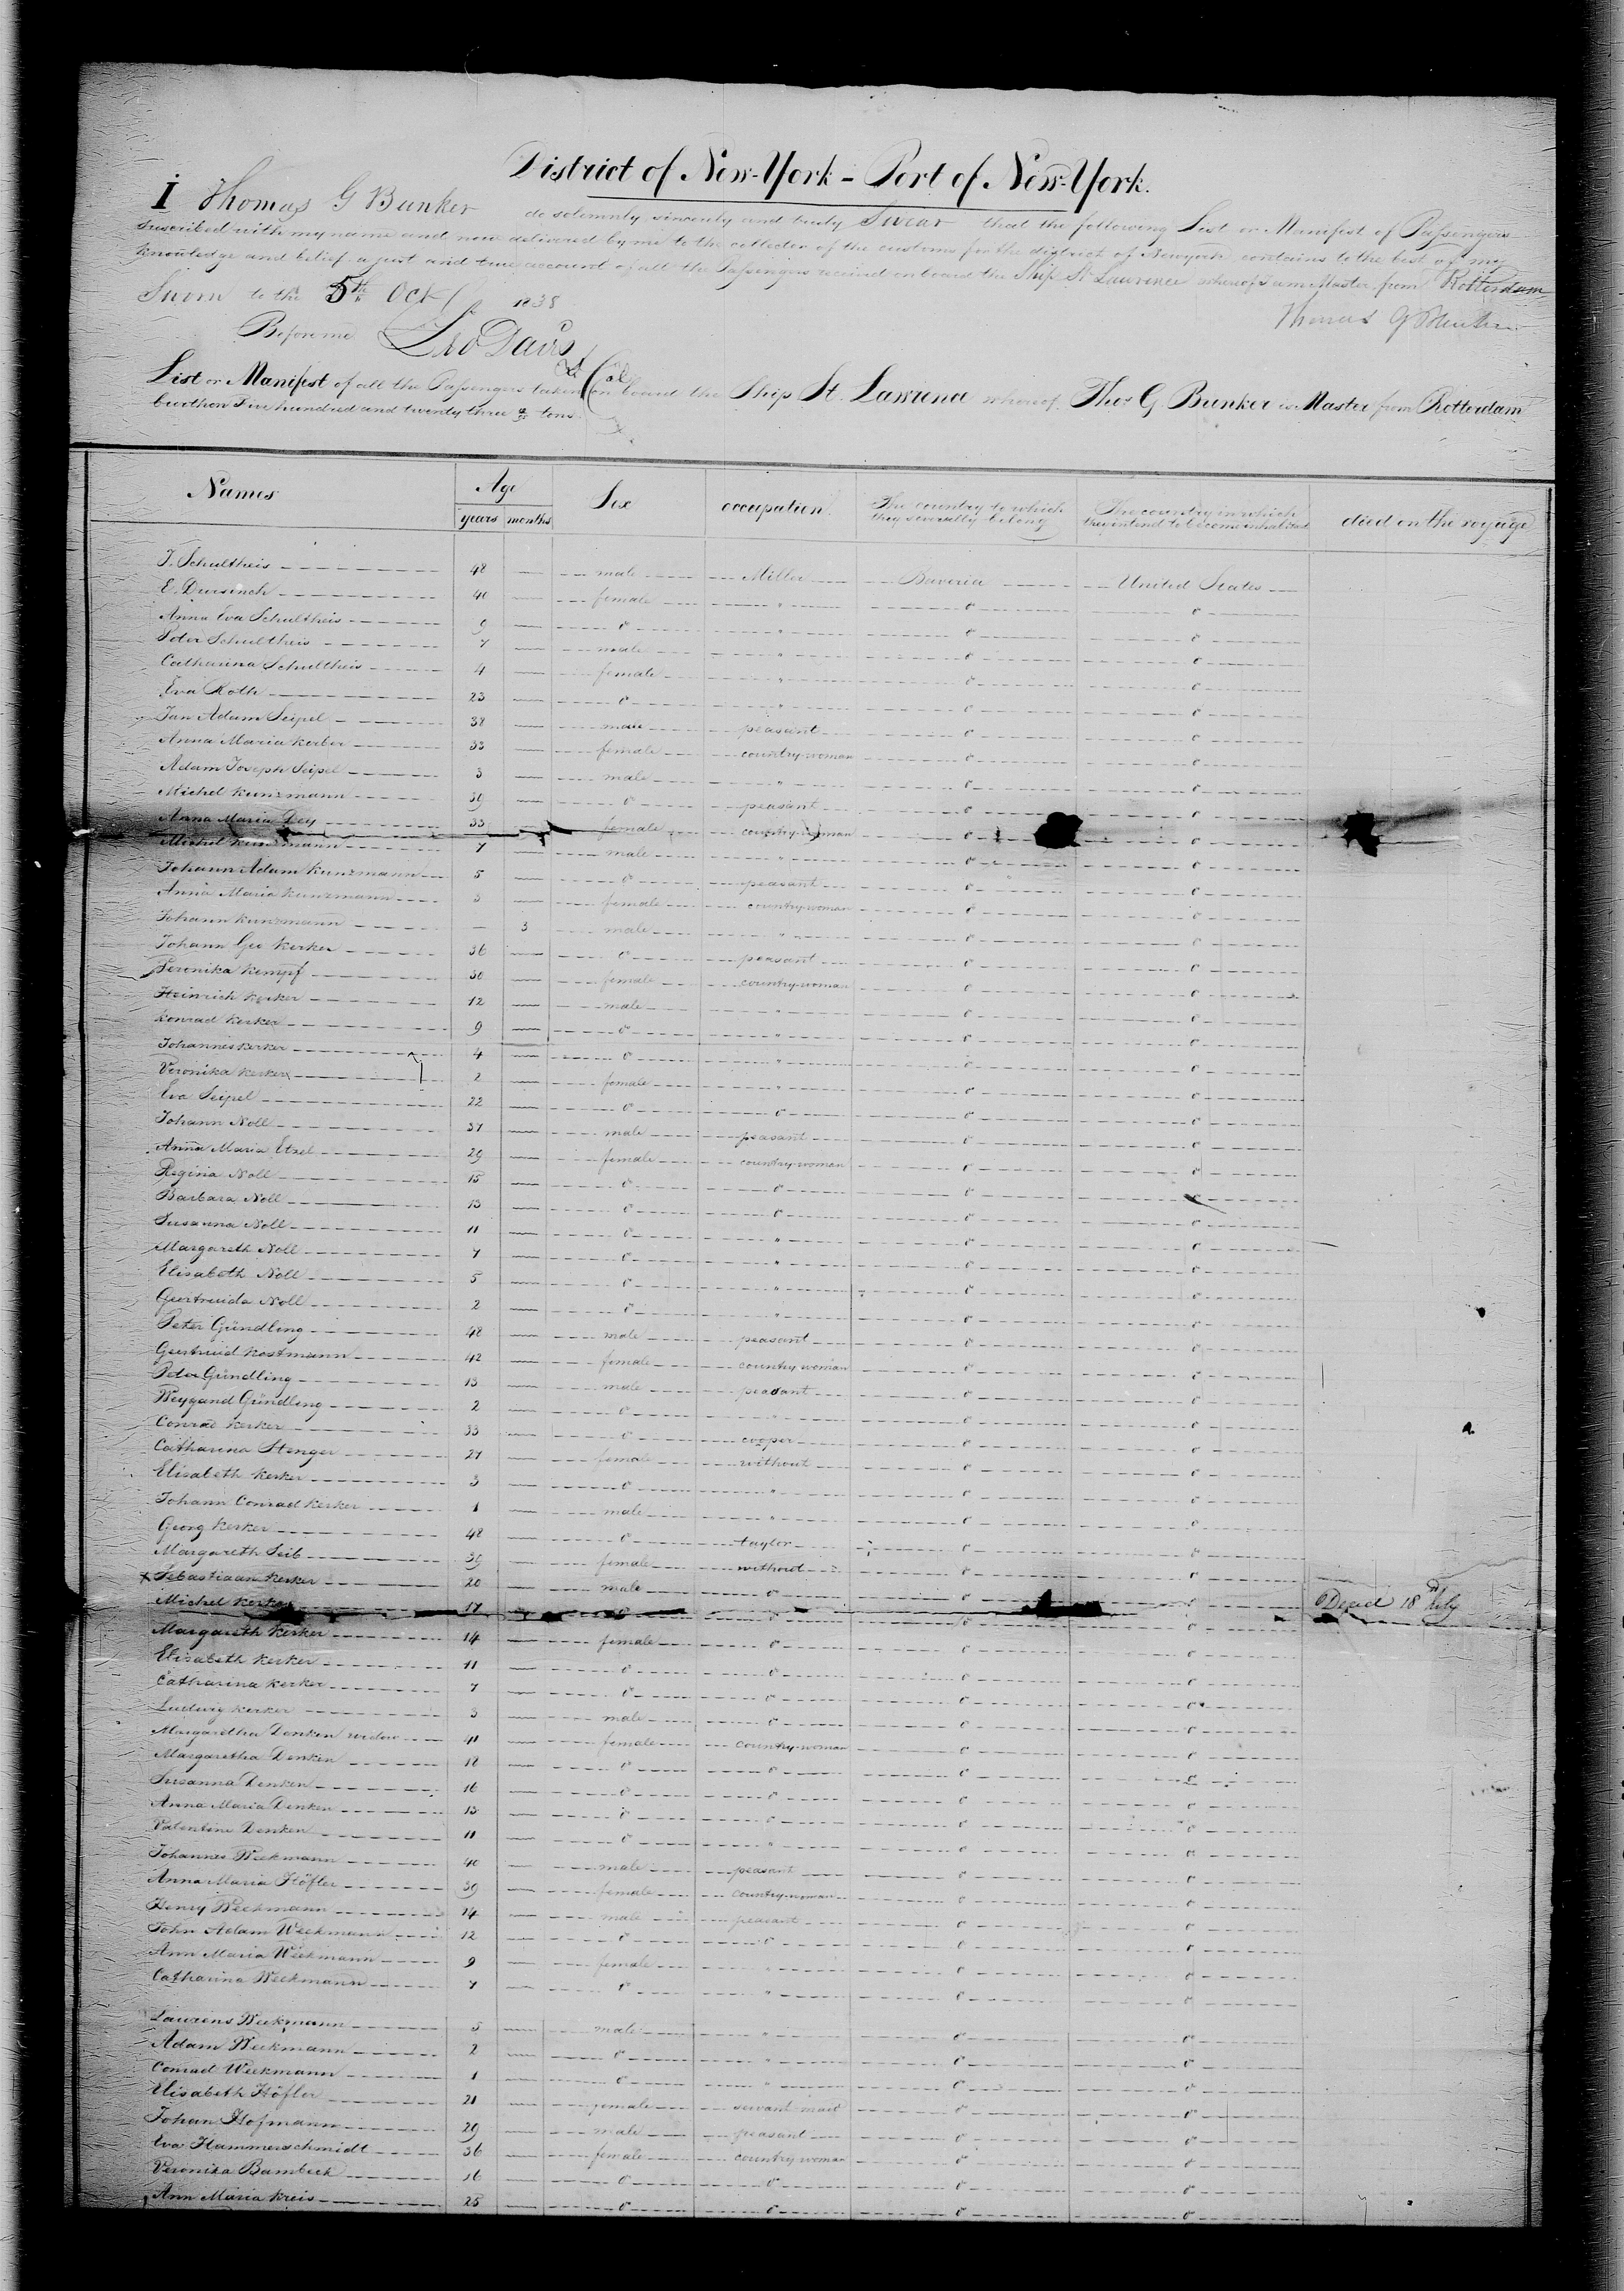 District of New-York - Port of New-York.
I Thomas G Bunker do solemnly, sincerely and truly Swear that the following List or Manifest of Passengers
Suscribed with my name and now delivered by me to the collector of the customs for the district of Newyork, contains to the best of my
Knowledge and belief a just and true account of all the Passengers received on board the Ship St Laurence whereof I am Master from Rotterdam
Sworn to the 5th Oct 1838
Thomas G Bunker
Before me Geo Davis
List or Manifest of all the Passengers taken on board the Ship St. Lawrence whereof Thos G Bunker is Master from Rotterdam
burthen Five hundred and twenty three tons
Names Age Sex occupation The country to which they severally belong The country in which they intend to become inhabitants died on the voyage
years months
J. Schultheis 48 male Miller Baveria United States
E. Dursinch 40 female " o o
Anna Eva Schultheis 9 o " o o
Peter Schultheis 7 male " o o
Catharina Schultheis 4 female " o o
Eva Roth 23 o " o o
Jan Adam Seipel 38 male peasant o o
Anna Maria Kerber 33 female country-woman o o
Adam Joseph Seipel 3 male " o o
Michel Kunzmann 39 o peasant o o
Anna Maria Dey 33 female country-woman o o
Michel Kunzmann 7 male " o o
Johann Adam Kunzmann 5 o peasant o o
Anna Maria Kunzmann 3 female country-woman o o
Johann Kunzmann 3 male " o o
Johann Geo Kerker 36 o peasant o o
Feronika Kempf 30 female country-woman o o
Heinrich Kerker 12 male " o o
Konrad Kerker 9 o " o o
Johannes Kerker 4 o " o o
Veronika Kerker 2 female " o o
Eva Seipel 22 o o o o
Johann Noll 37 male peasant o o
Anna Maria Etzel 29 female country-woman o o
Regina Noll 15 o o o o
Barbara Noll 13 o o o o
Susanna Noll 11 o " o o
Margareth Noll 7 o " o o
Elisabeth Noll 5 o " o o
Geertruida Noll 2 o " o o
Peter Gündling 48 male peasant o o
Geertruid Kostmann 42 female country woman o o
Peter Gündling 13 male peasant o o
Weygand Gündling 2 o " o o
Conrad Kerker 33 o cooper o o
Catharina Stenger 27 female without o o
Elisabeth Kerker 3 o " o o
Johann Conrad Kerker 1 male " o o
Georg Kerker 48 o taylor o o
Margareth Seib 39 female without o o
x Sebastiaan Kerker 20 male o o o Died 18 July
Michel Kerker 17 o o o
Margareth Kerker 14 female o o o
Elisabeth Kerker 11 o o o o
Catharina Kerker 7 o o o o
Ludwig Kerker 3 male o o o
Margaretha Denken widow 41 female country-woman o o
Margaretha Denken 18 o o o o
Susanna Denken 16 o o o o
Anna Maria Denken 13 o o o o
Valentine Denken 11 o " o o
Johannes Weekmann 40 male peasant o o
Anna Maria Höfler 39 female country-woman o o
Henry Weekmann 14 male peasant o o
John Adam Weekmann 12 o o o o
Ann Maria Weekmann 9 female " o o
Catharina Weekmann 7 o " o o
Laurens Weekmann 5 male " o o
Adam Weekmann 2 o " o o
Conrad Weekmann 1 o " o o
Elisabeth Höfler 21 female servant maid o o
Johan Hofmann 29 male peasant o o
Eva Hammerschmidt 36 female country woman o o
Veronika Bambeck 16 o o o o
Ann Maria Kreis 25 o o o o